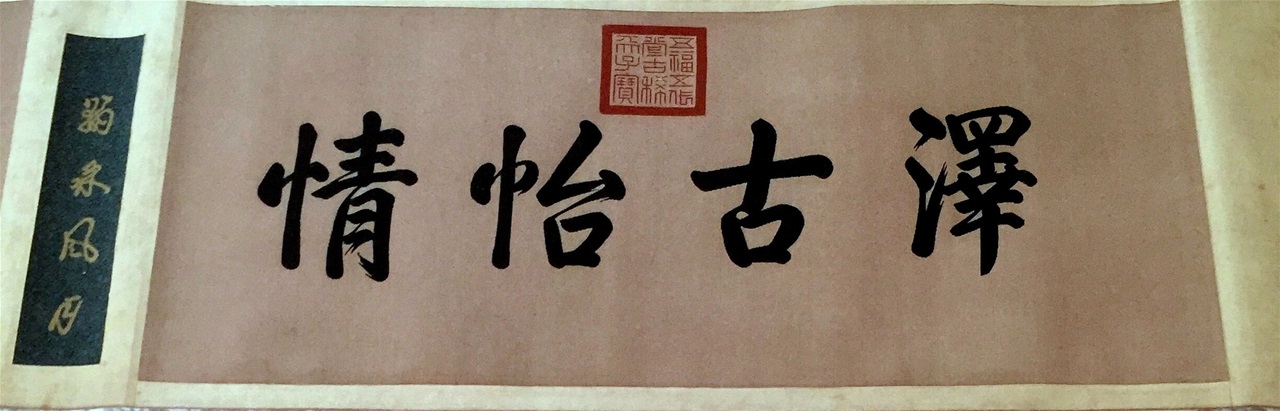 澤古怡情
五福五代
堂古稀
天子寶
風月